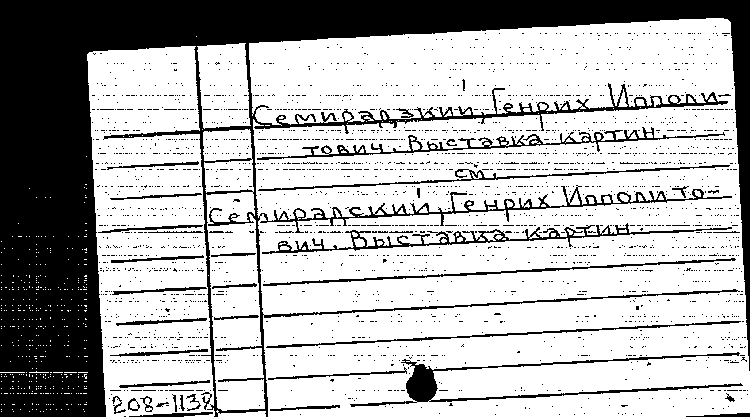 Семирадзкий, Генрих Ипполи-
тович. Выставка картин.
см.
Семирадский, Генрих Ипполито-
вич. Выставка картин.
208-1138